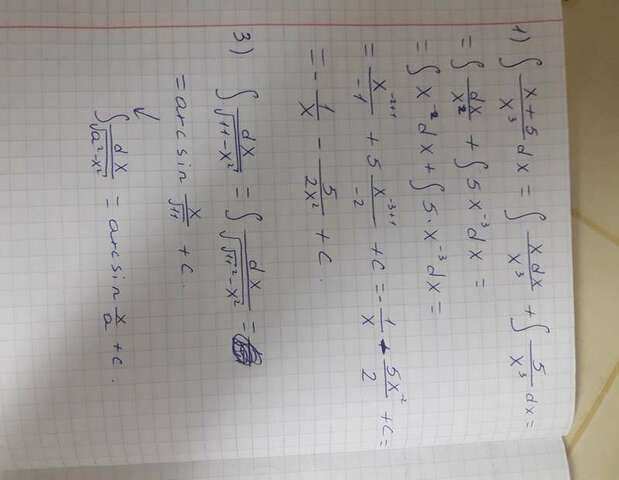 1) ∫ (x+5)/x³ dx = ∫ xdx/x³ + ∫ 5/x³ dx =
= ∫ dx/x² + ∫ 5x⁻³ dx =
= ∫ x⁻² dx + ∫ 5·x⁻³ dx =
= x⁻²⁺¹/-1 + 5 x⁻³⁺¹/-2 + c = -1/x - 5x⁻²/2 + c =
= -1/x - 5/2x² + c.
3) ∫ dx/√(11-x²) = ∫ dx/√(√11²-x²) =
= arcsin x/√11 + c.
↙
∫ dx/√(a²-x²) = arcsin x/a + c.